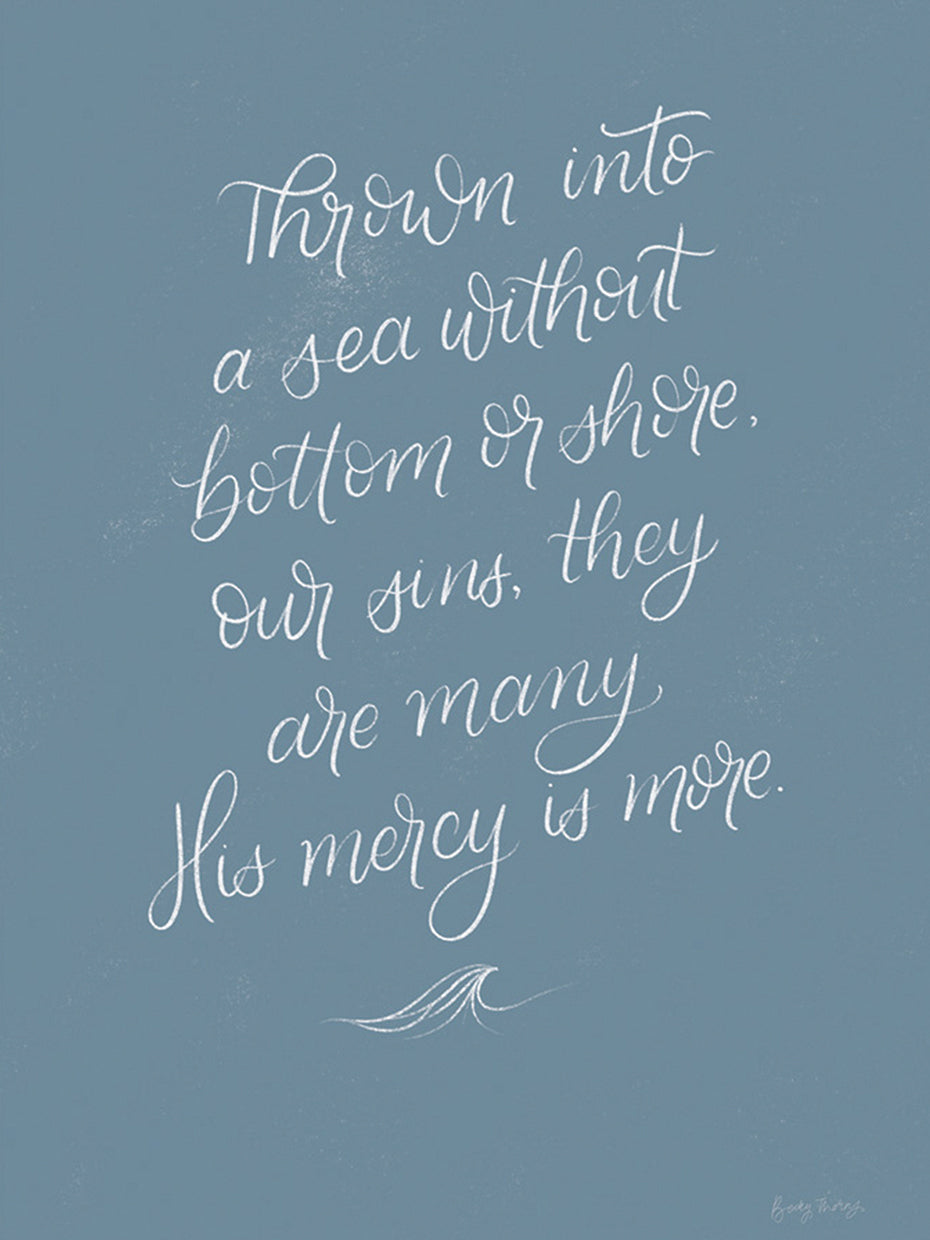 Thrown into
a sea without
bottom or shore,
our sins, they
are many,
His mercy is more.
Becky